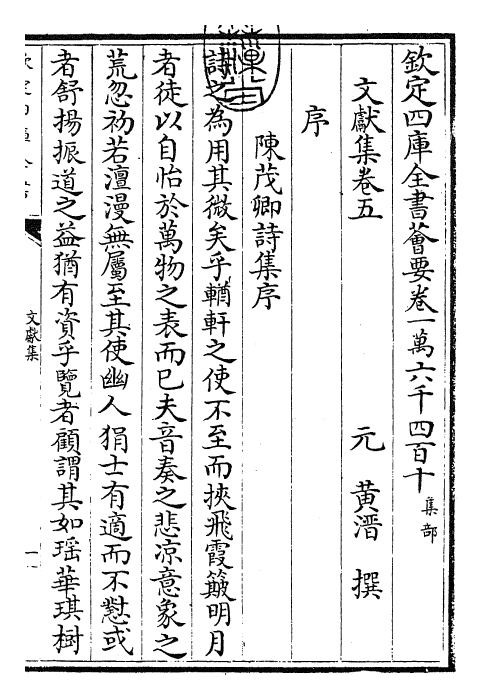 欽定四庫全書薈要卷一萬六千四百十集部
文獻集卷五
元 黃溍 撰
序
陳茂卿詩集序
詩之為用其微矣乎輶軒之使不至而挾飛霞簸明月
者徒以自怡於萬物之表而已夫音奏之悲凉意象之
荒忽初若澶漫無屬至其使幽人狷士有適而不懟或
者舒揚振道之益猶有資乎覽者顧謂其如瑶華琪樹
文獻集
一